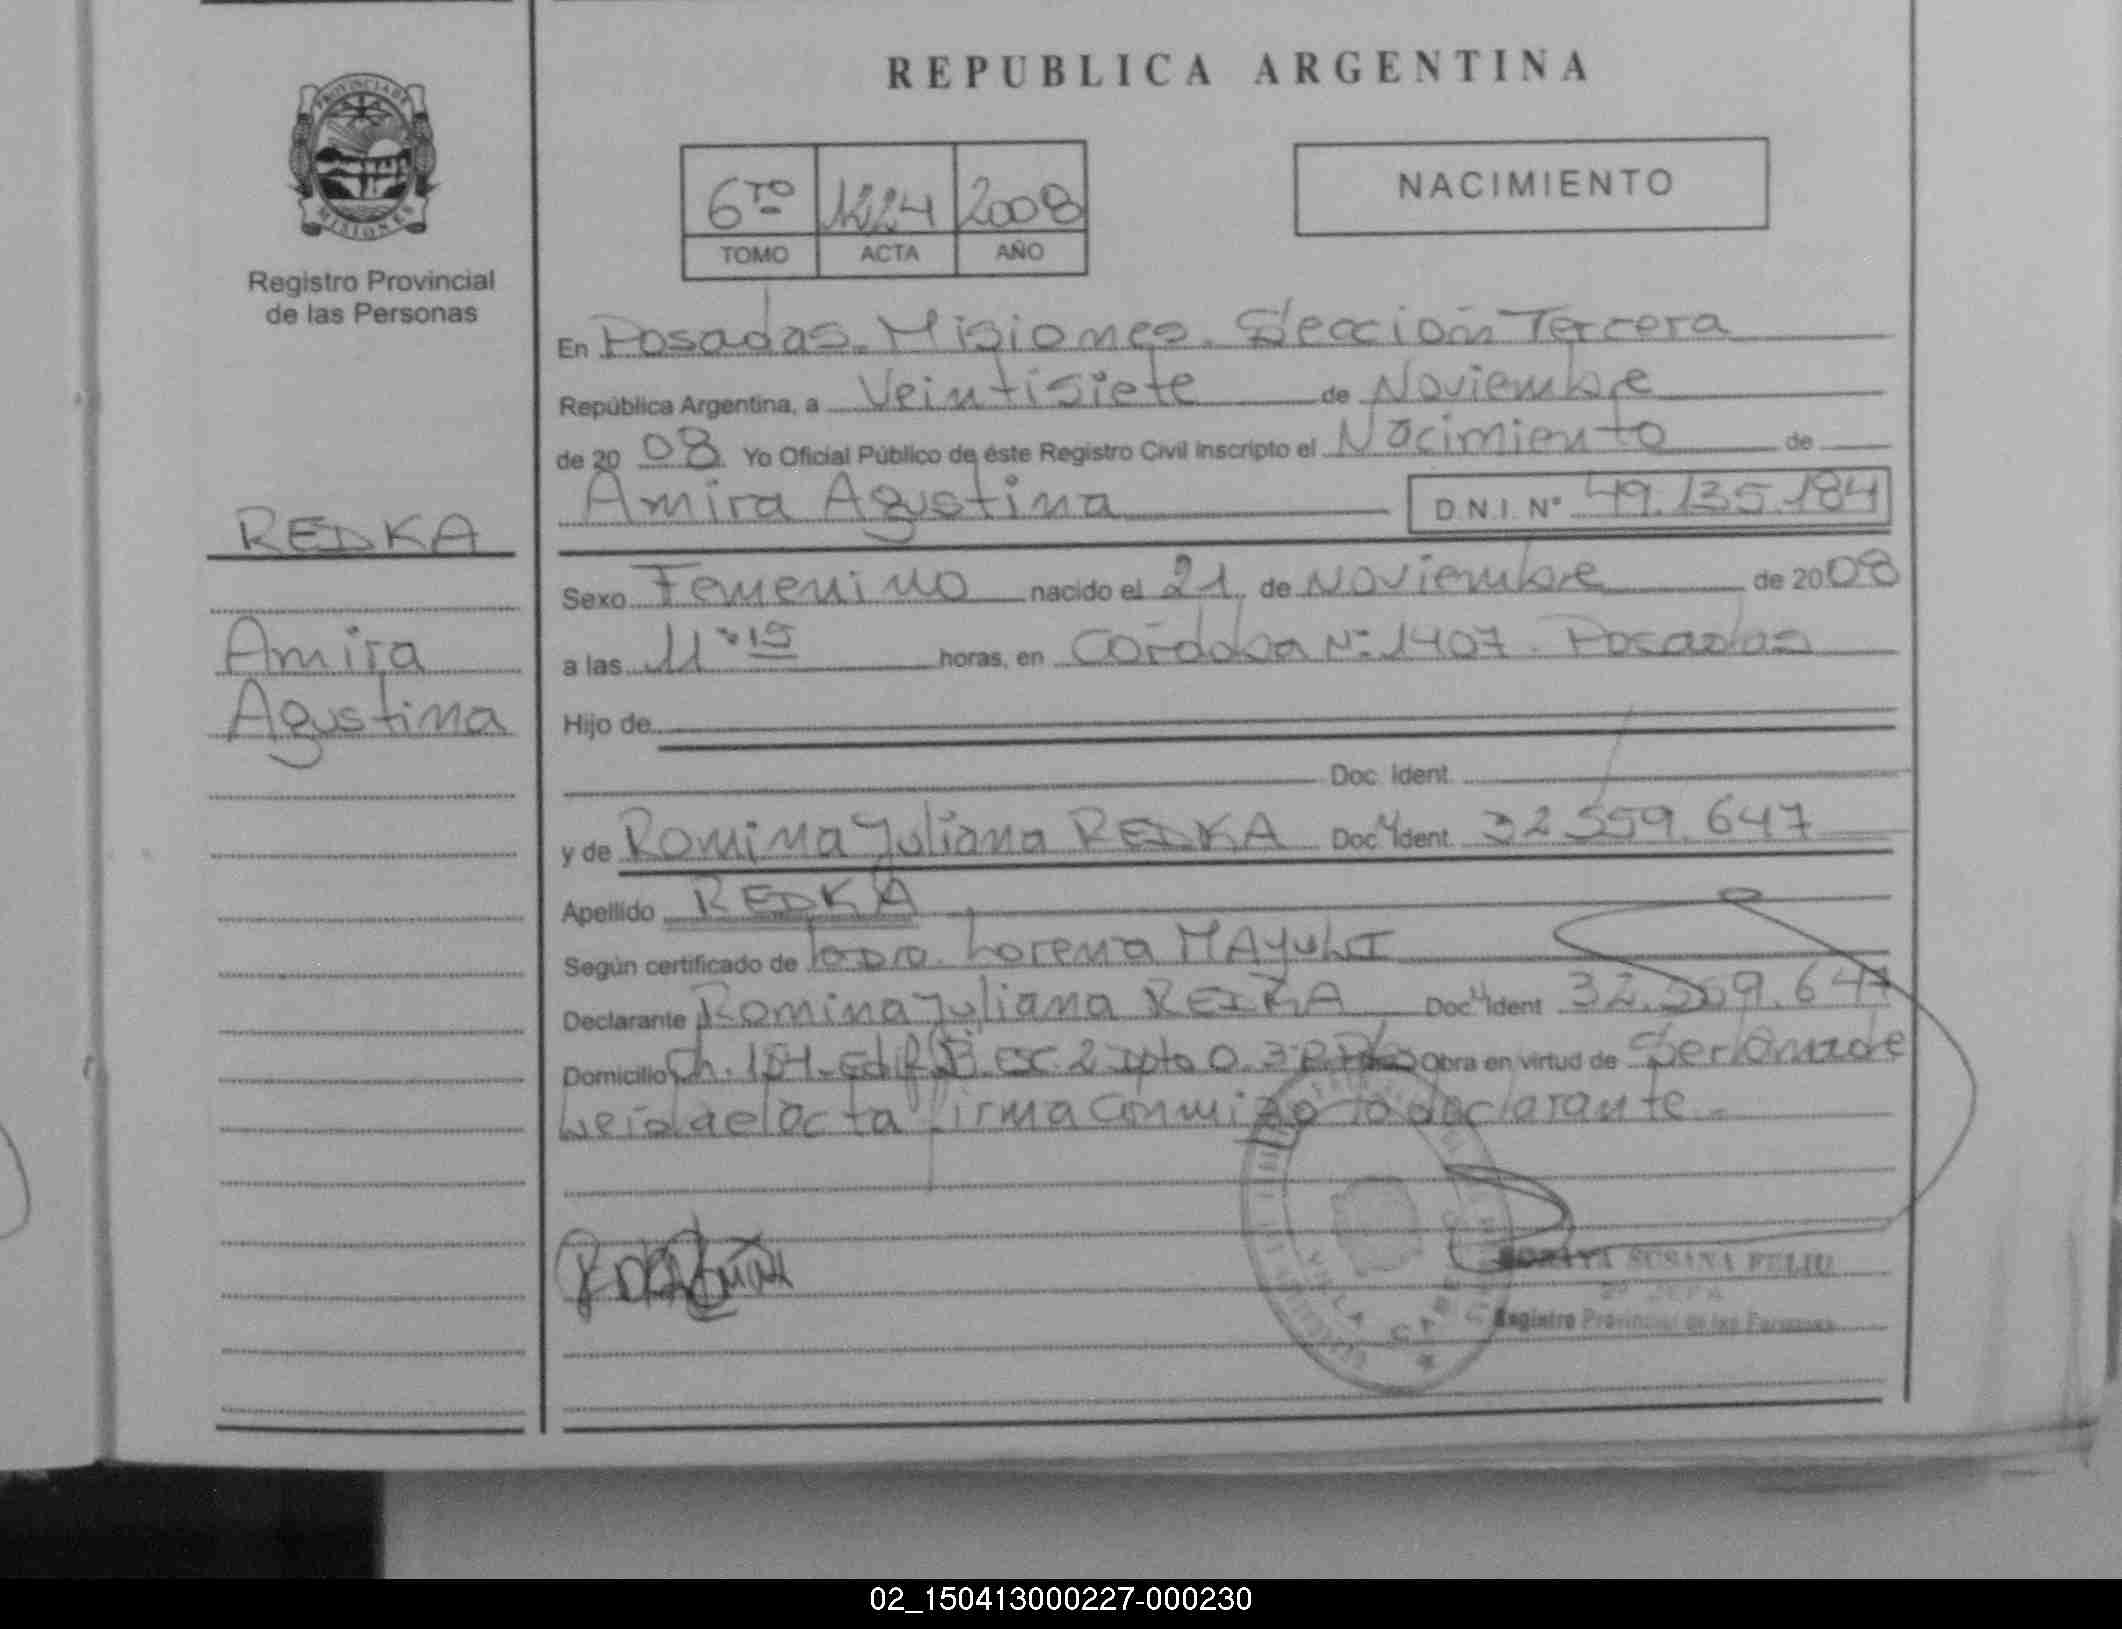 REPUBLICA ARGENTINA
PROVINCIA DE
MISIONES
Registro Provincial
de las Personas
6TO 1224 2008
TOMO ACTA AÑO
NACIMIENTO
En Posadas. Misiones. Sección Tercera
República Argentina, a Veintisiete de Noviembre
de 20 08. Yo Oficial Público de éste Registro Civil inscripto el Nacimiento de
Amira Agustina D.N.I. Nº 49.135.184
REDKA
Sexo Femenino nacido el 21 de Noviembre de 2008
Amira
a las 11 15 horas, en Cordoba Nº 1407. Posadas
Agustina
Hijo de
Doc. Ident.
y de Romina Juliana REDKA Doc. Ident. 32.559.647
Apellido REDKA
Según certificado de la Dra. Lorena
Declarante Romina Juliana REDKA Doc. Ident. 32.559.647
Domicilio Ch. edif esc. 2 Dpto 0. Obra en virtud de Ser la madre
Leida el acta firma conmigo la declarante.
SUSANA FELIU
JEFA
Registro Provincial de las Personas
02_150413000227-000230